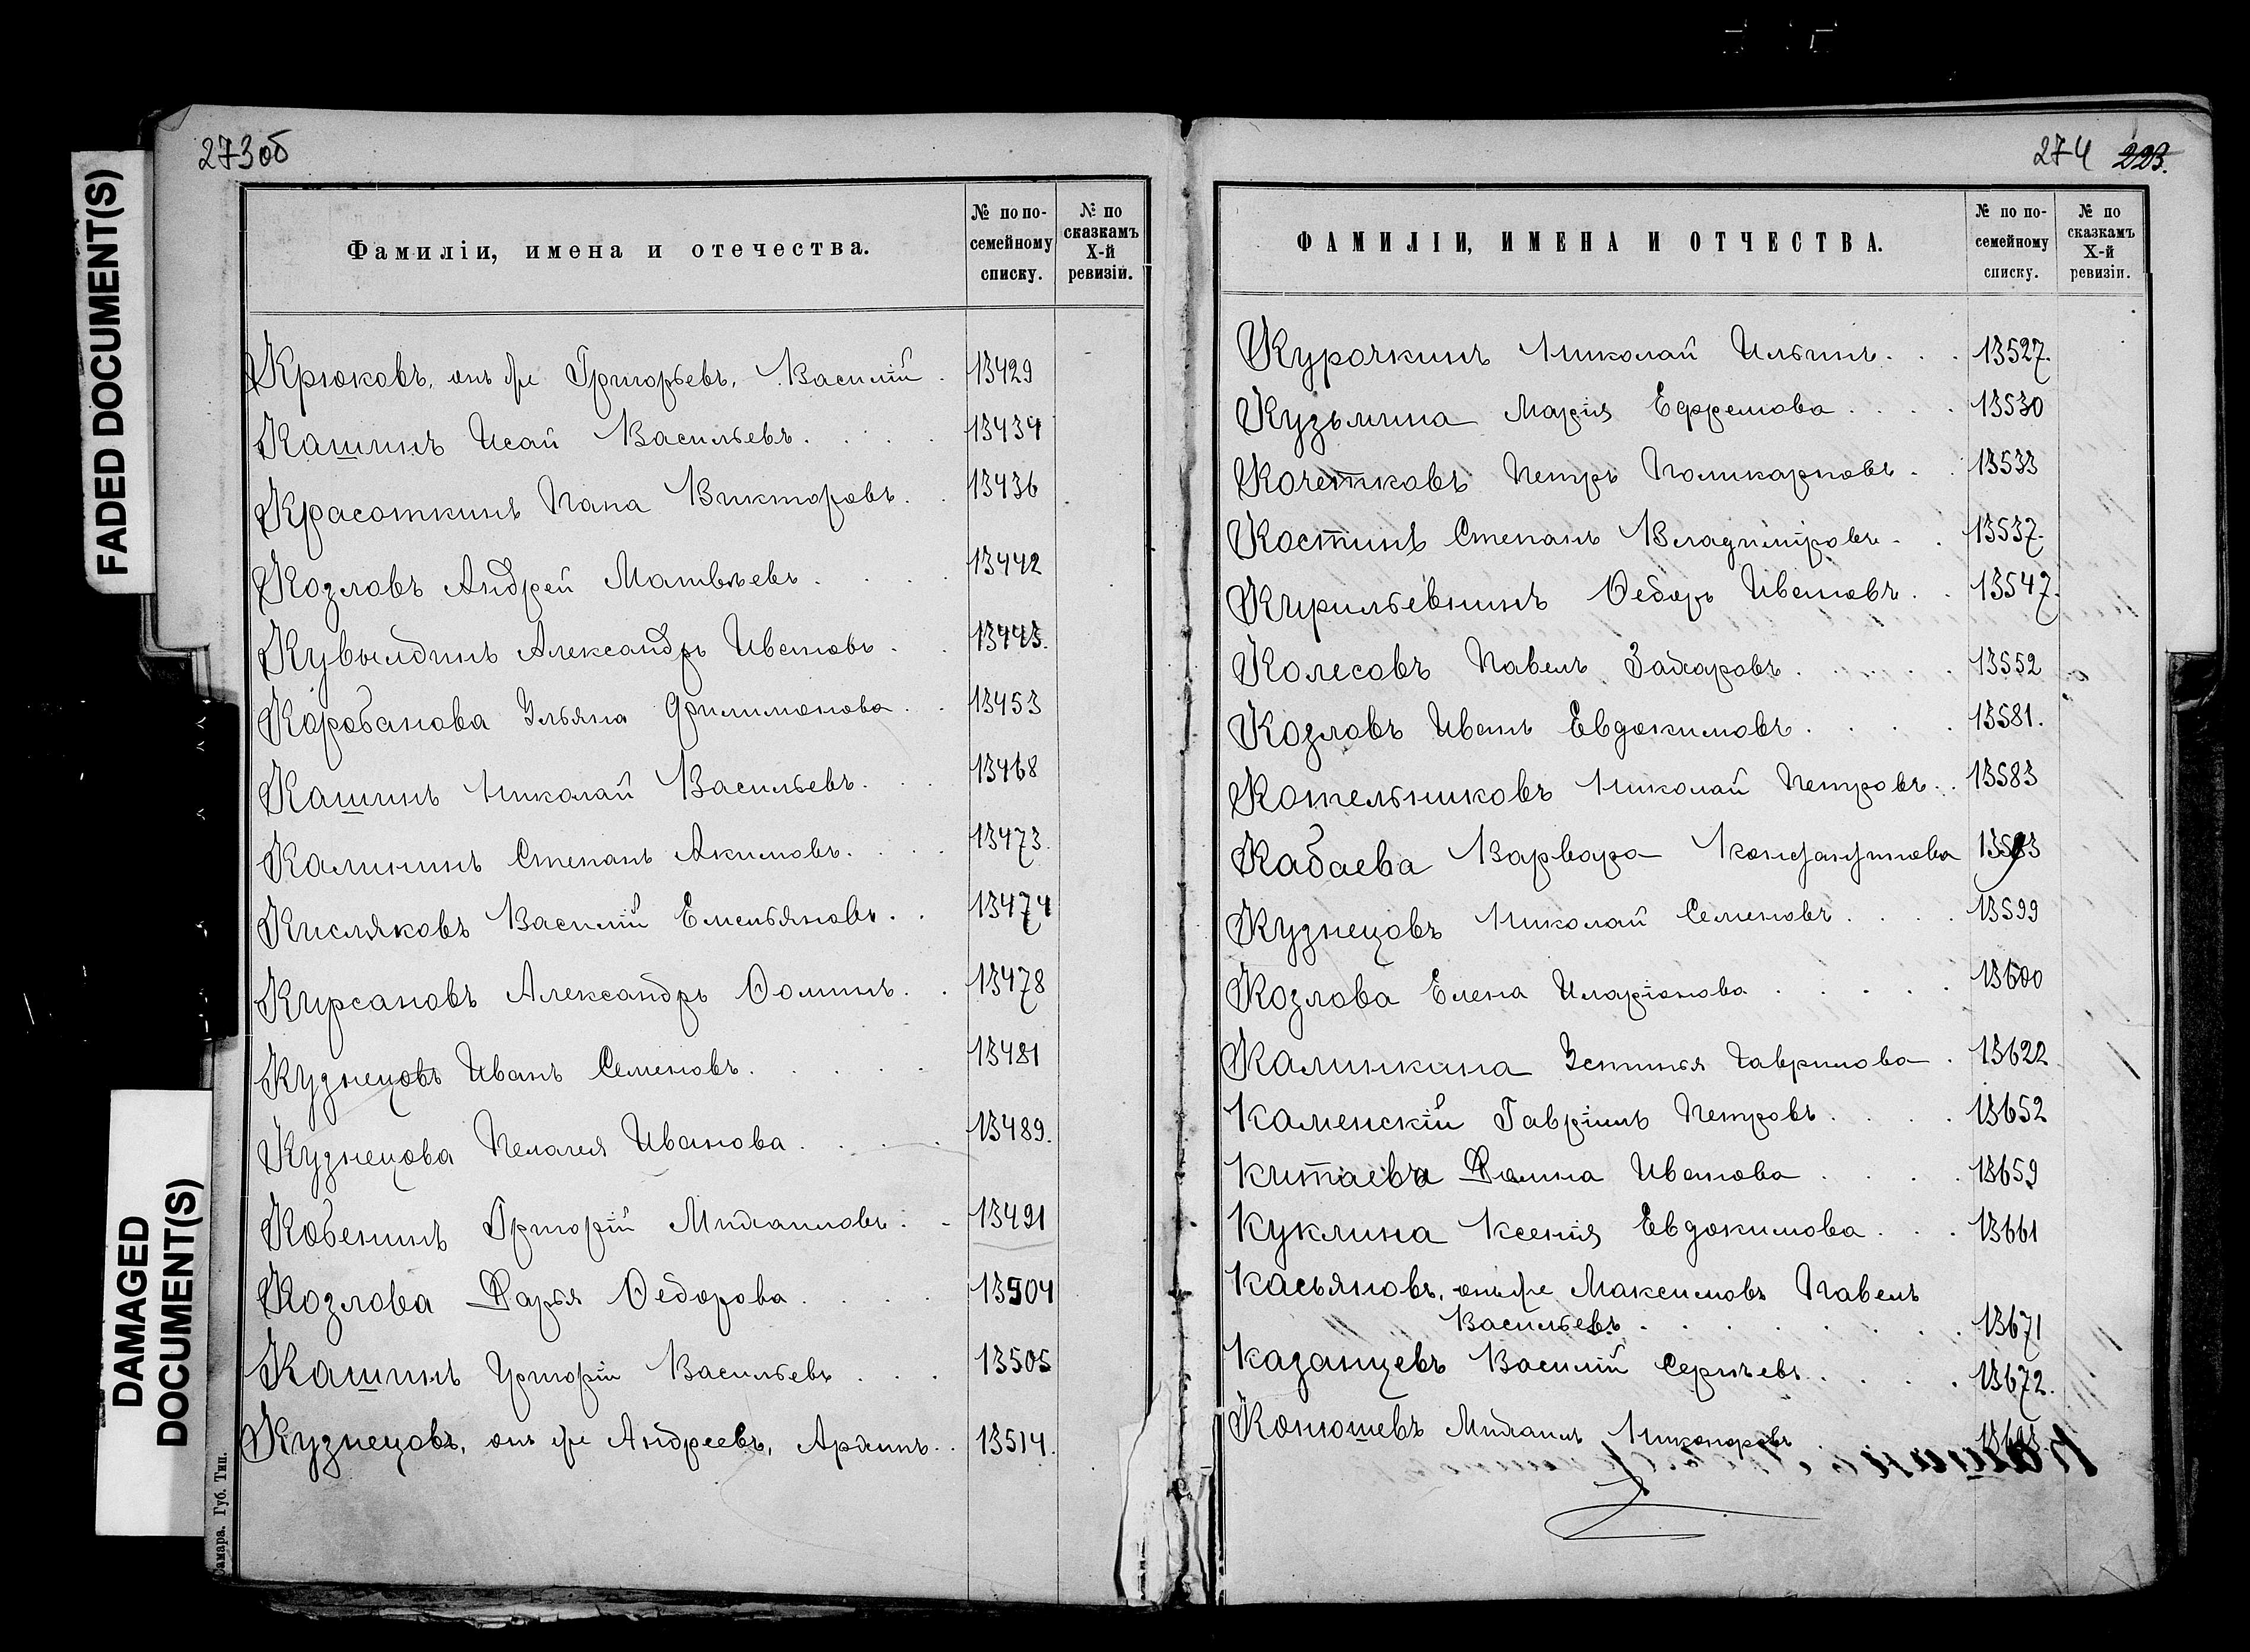 FADED DOCUMENT(S)
DAMAGED
DOCUMENT(S)
273об
Фамиліи, имена и отечества.
№ по по-
семейному
списку.
№ по
сказкамъ
X-й
ревизіи.
Крюковъ, онъ же Григорьевъ, Василій . 13429
Кашинъ Исай Васильевъ. . . . 13434
Красоткинъ Папа Викторовъ. . 13436
Козловъ Андрей Матвѣевъ . . . . 13442
Кувылдинъ Александръ Ивановъ . . 13443.
Коробанова Ульяна Филимонова . . 13453
Кашинъ Николай Васильевъ. . . 13468
Калининъ Степанъ Акимовъ. . . . 13473.
Кисляковъ Василій Емельяновъ. . 13474
Кирсановъ Александръ Ѳоминъ. . 13478
Кузнецовъ Иванъ Семеновъ. . . . . 13481
Кузнецова Пелагея Иванова . . . . 13489.
Кобенинъ Григорій Михаиловъ. . 13491
Козлова Дарья Ѳедорова . . . . 13504
Кашинъ Григорій Васильевъ . . . 13505
Кузнецовъ, онъ же Андреевъ, Архипъ. . 13514.
Самара. Губ. Тип.
274 223.
ФАМИЛІИ, ИМЕНА И ОТЧЕСТВА.
№ по по-
семейному
списку.
№ по
сказкамъ
X-й
ревизіи.
Курочкинъ Николай Ильинъ. . . 13527.
Кузьмина Марія Ефремова . . . . 13530
Кочетковъ Петръ Поликарповъ . . 13533
Костинъ Степанъ Владиміровъ . . 13537.
Кирильевнинъ Ѳедоръ Ивановъ . . 13547.
Колесовъ Павелъ Захаровъ . . . . . 13552
Козловъ Иванъ Евдокимовъ . . . . 13581.
Котельниковъ Николай Петровъ . . 13583
Кабаева Варвара Константинова 13593
Кузнецовъ Николай Семеновъ . . . . 13599
Козлова Елена Иларіонова . . . . . 13600
Калинкина Устинья Гаврилова . 13622
Каменскій Гавріилъ Петровъ . . . . 13652
Китаева Домна Иванова . . . . 13659
Куклина Ксенія Евдокимова . . . 13661
Касьяновъ, онъ же Максимовъ Павелъ
Васильевъ . . . . . . . . 13671
Казанцевъ Василій Сергѣевъ . . . . 13672.
Конюшевъ Михаилъ Никоноровъ